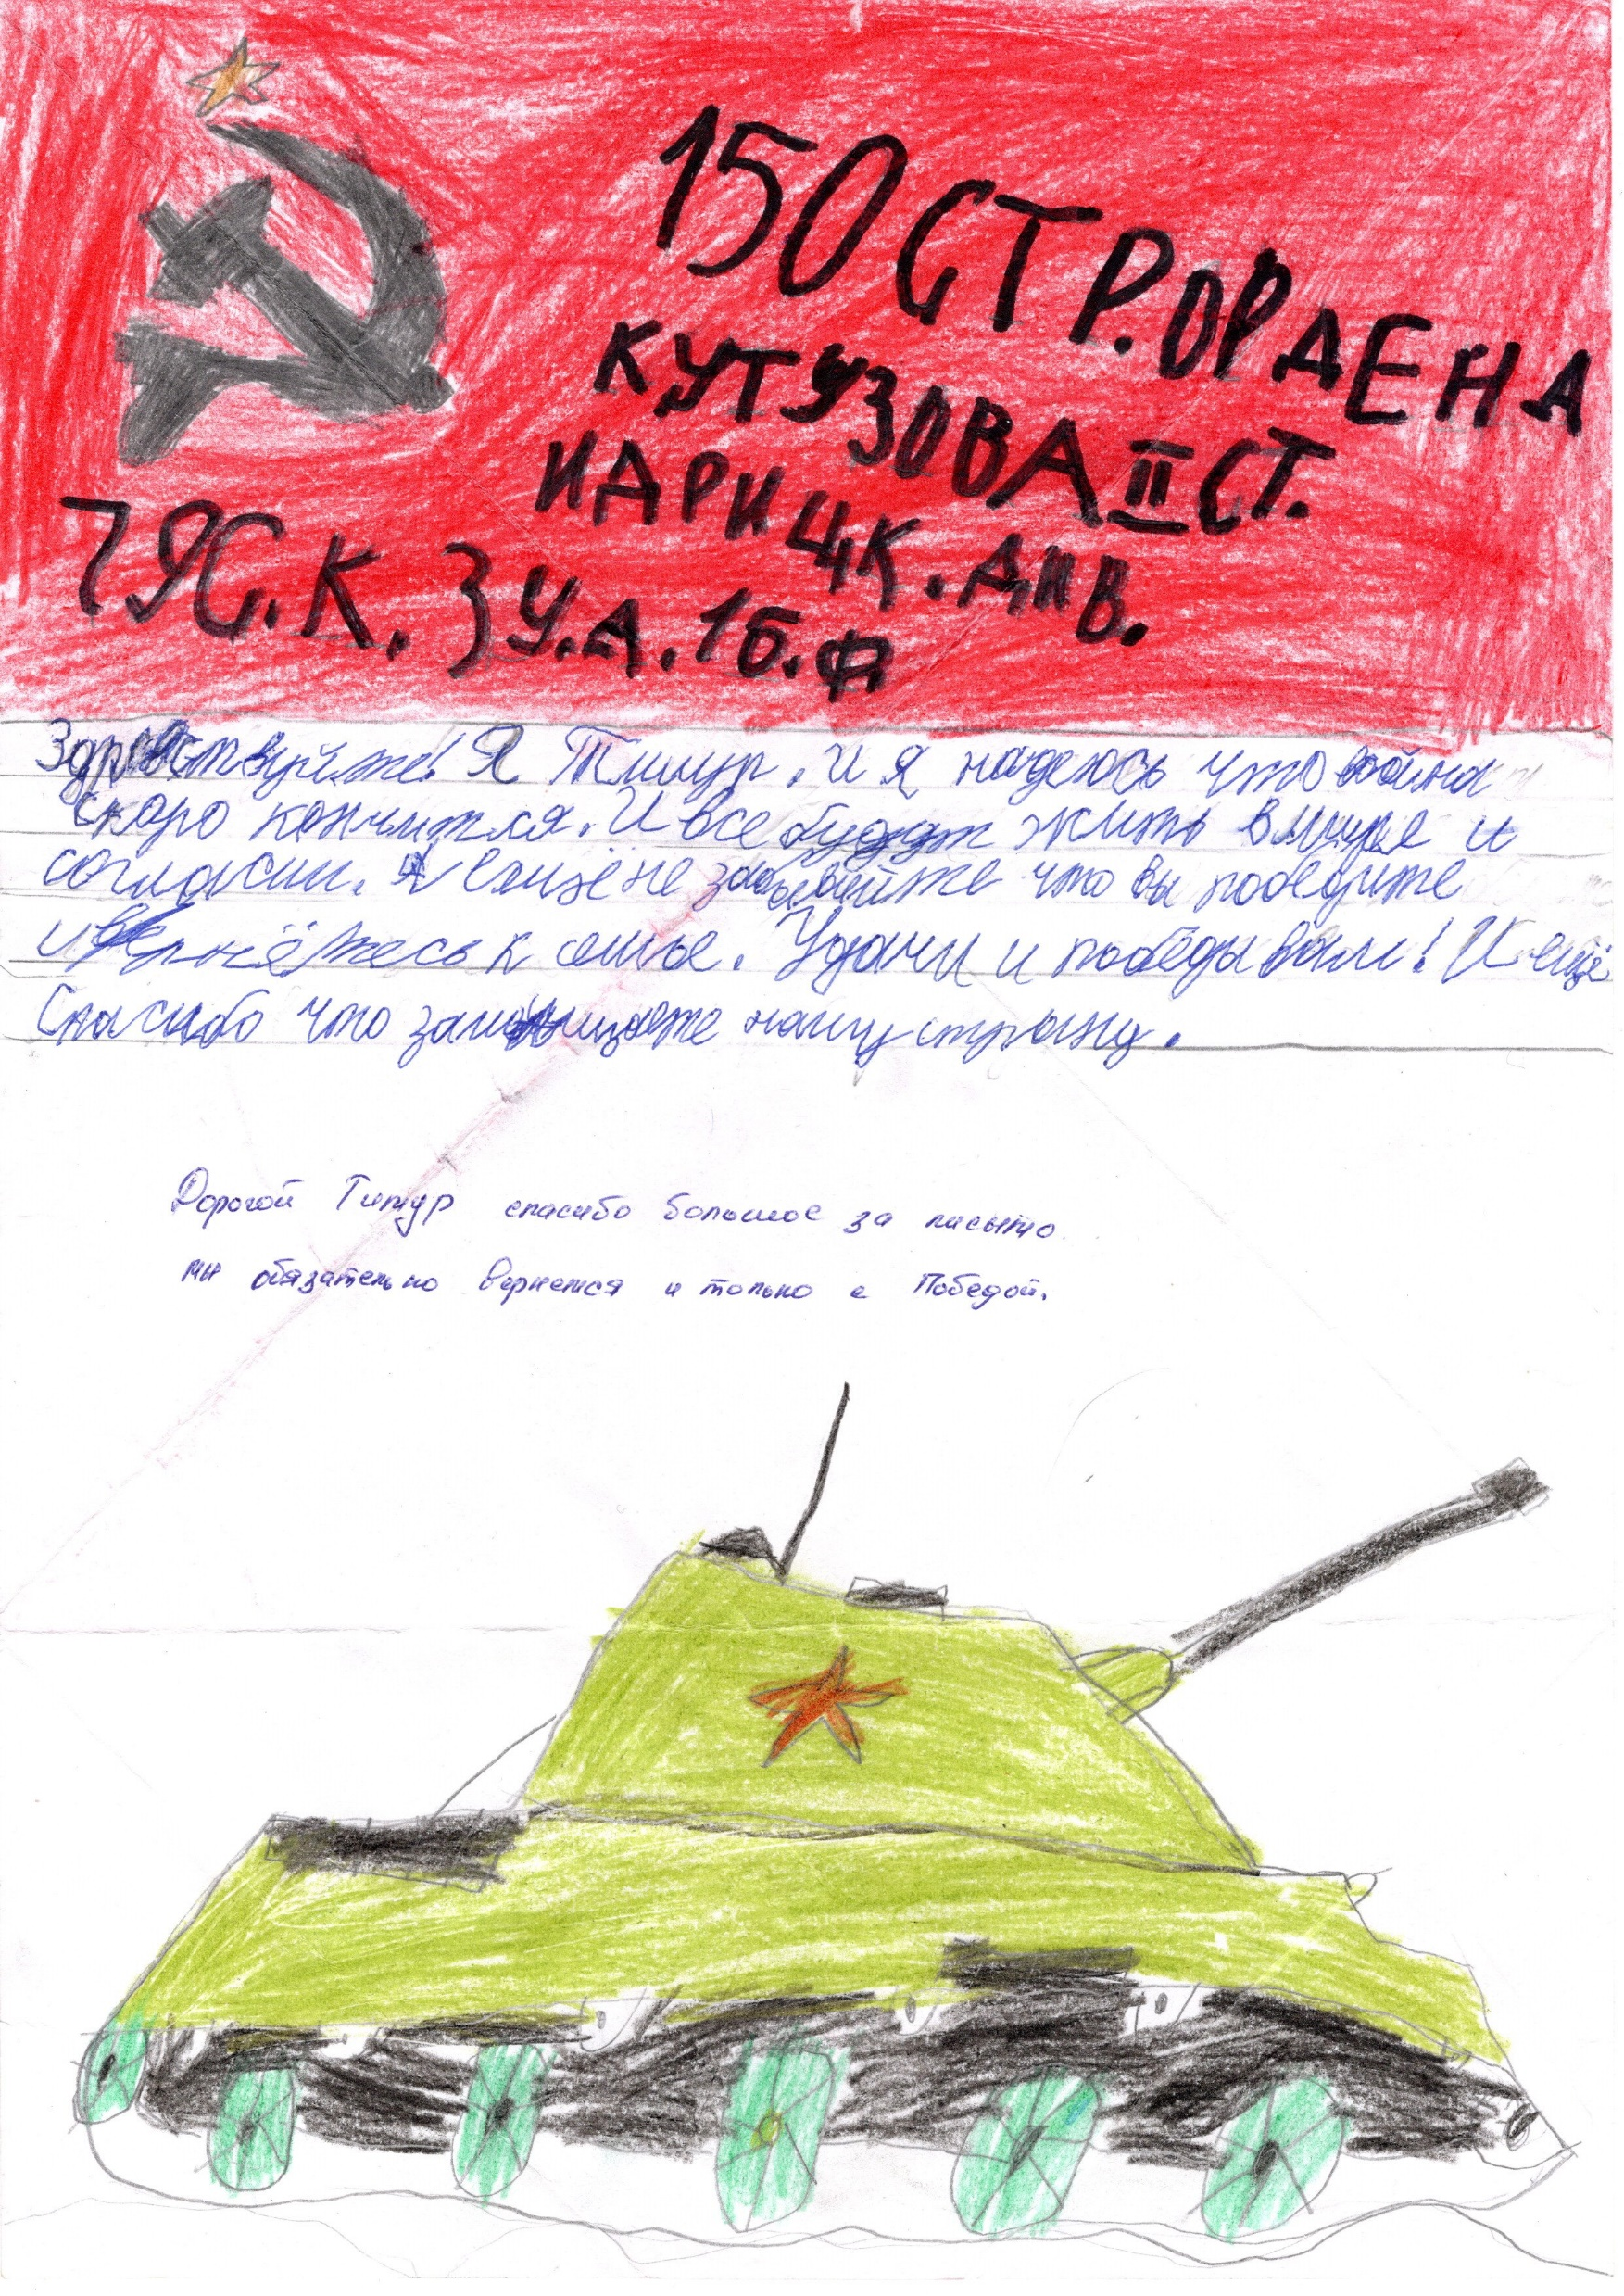 150 СТР. ОРДЕНА
КУТУЗОВА II СТ.
ИДРИЦК. ДИВ.
79С.К. 3У.А. 1Б.Ф
Здравствуйте! Я Тимур. И я надеюсь что война
скоро кончится. И все будут жить в мире и
согласии. не забывайте что вы победите
и вернётесь к семье. Удачи и победы вам! И ещё
Спасибо что защищаете нашу страну.
Дорогой Тимур спасибо большое за письмо.
мы обязательно вернемся и только с Победой.